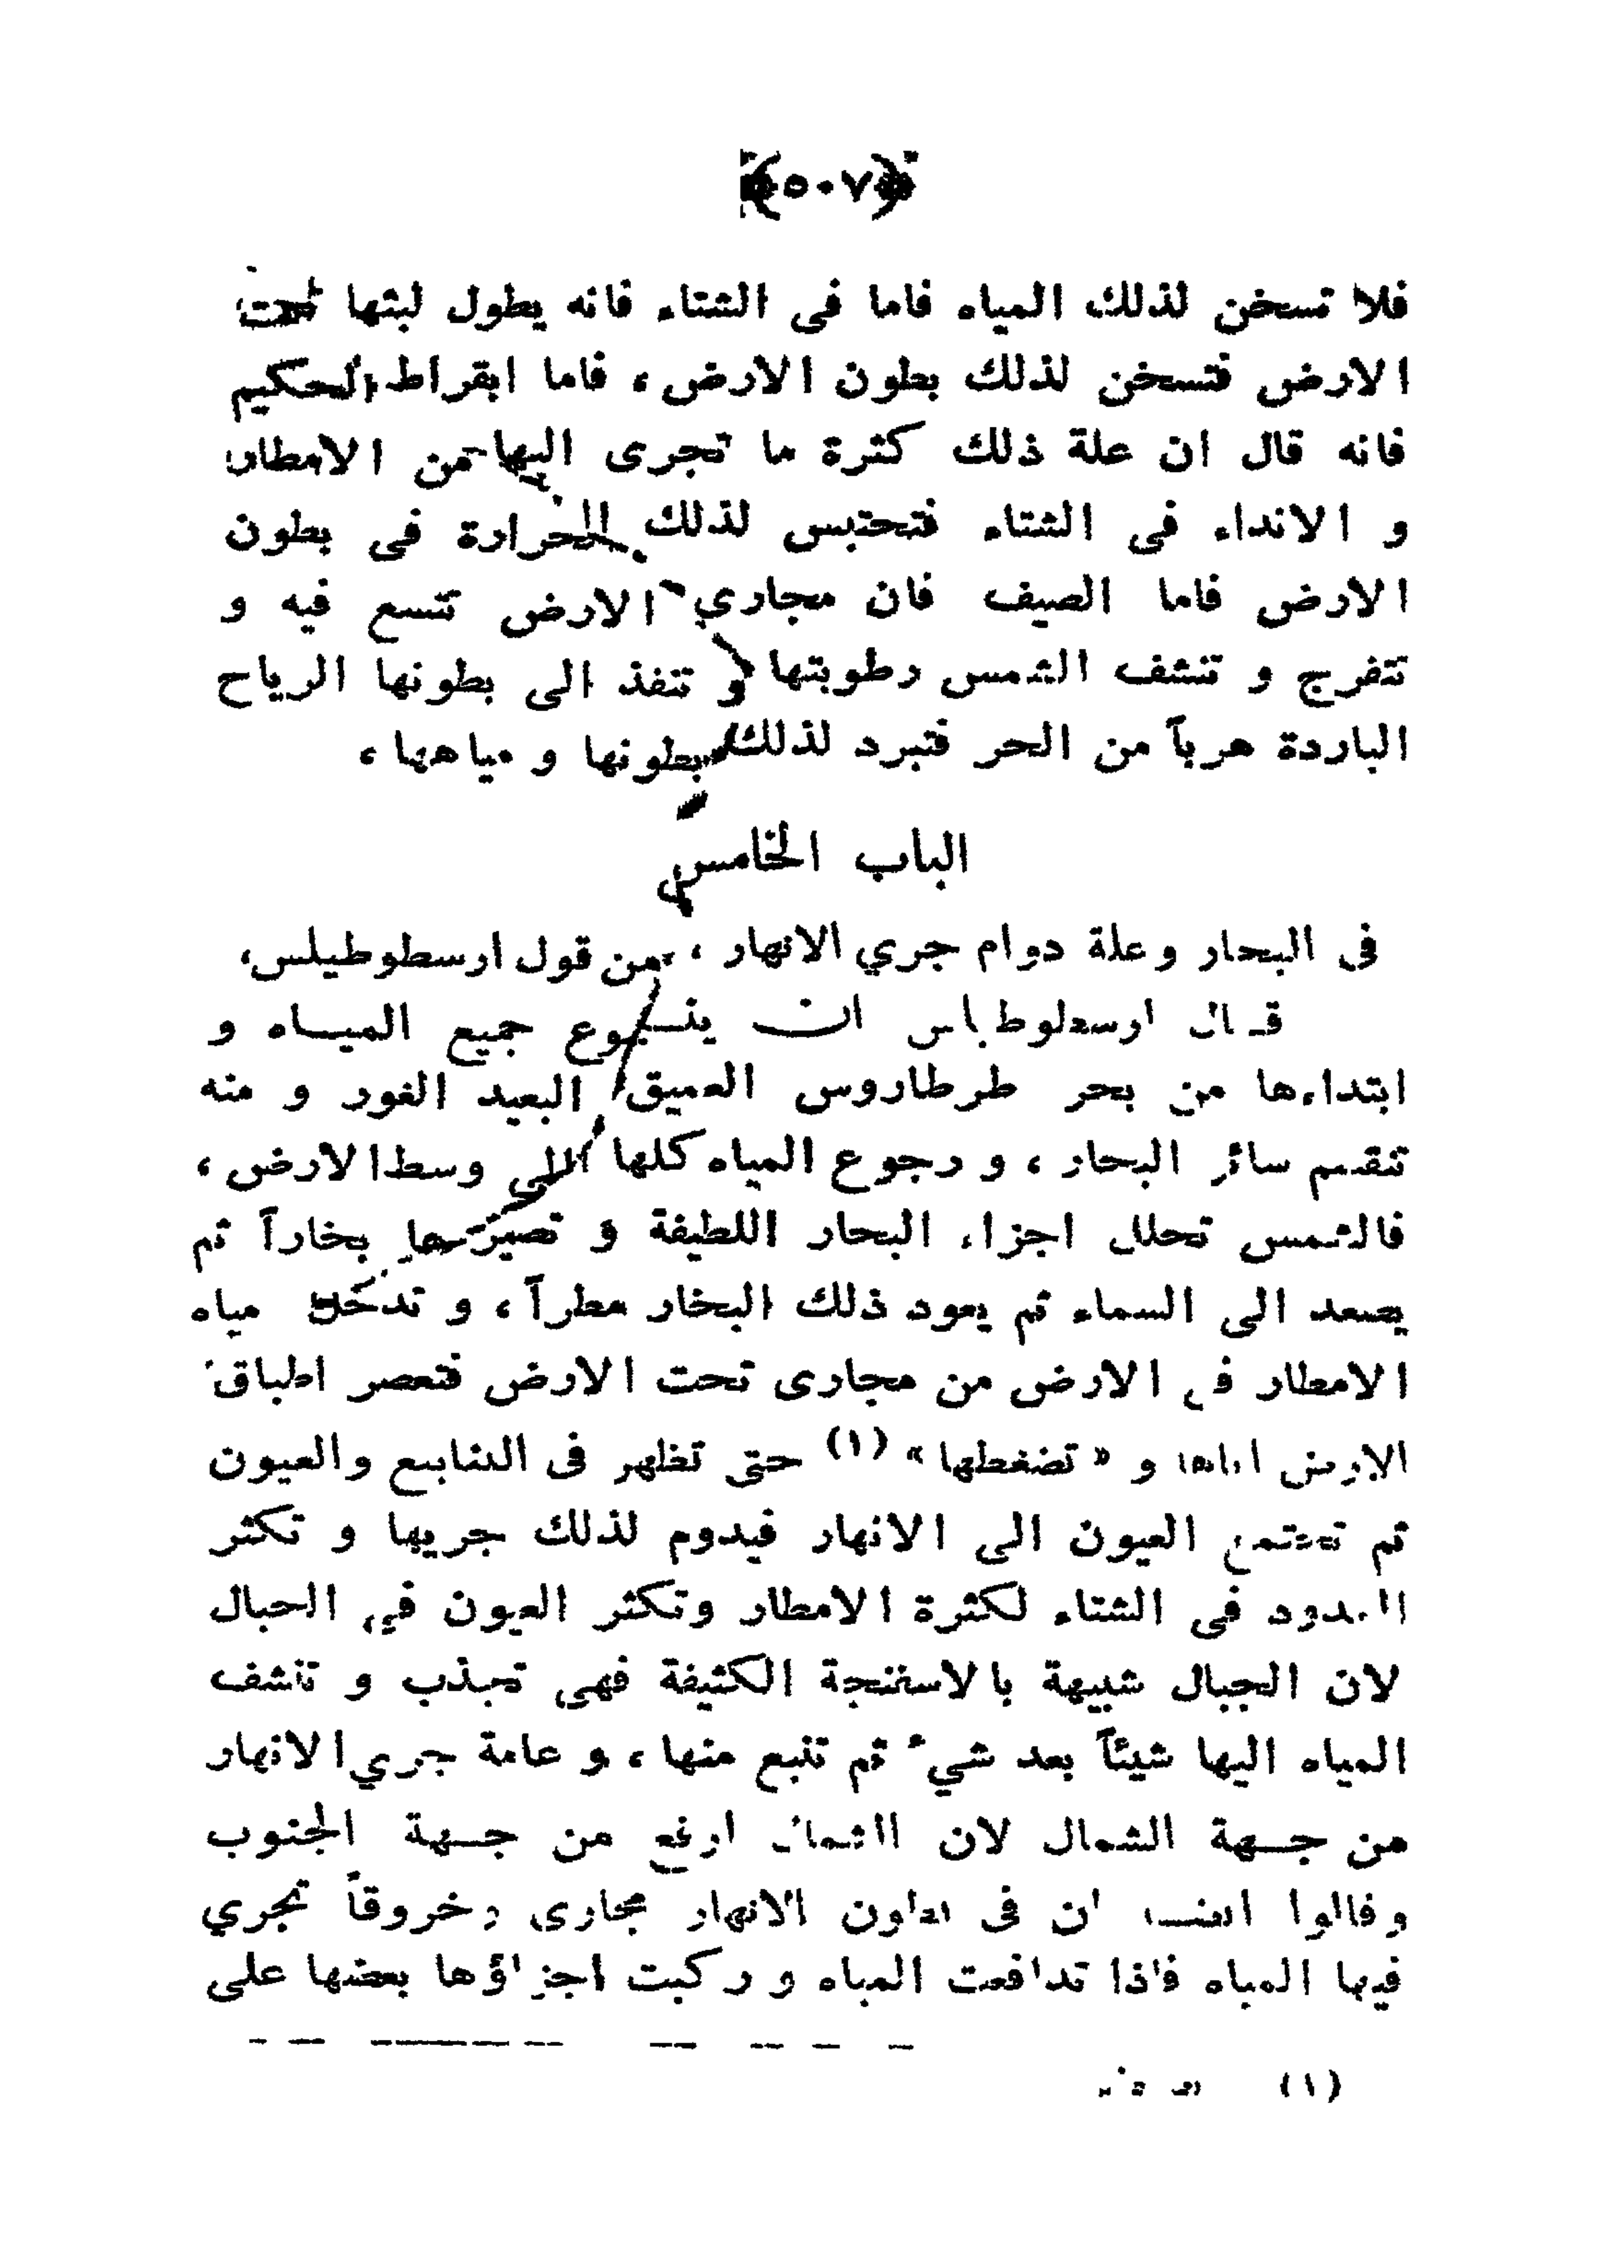 ﴿٥٠٧﴾
فلا تسخن لذلك المياه فاما فى الشتاء فانه يطول لبثها تحت
الارض فتسخن لذلك بطون الارض، فاما ابقراط الحكيم
فانه قال ان علة ذلك كثرة ما تجرى اليها من الامطار
و الانداء فى الشتاء فتحتبس لذلك الحرارة فى بطون
الارض فاما الصيف فان مجاري الارض تتسع فيه و
تتفرج و تنشف الشمس رطوبتها و تنفذ الى بطونها الرياح
الباردة هرباً من الحر فتبرد لذلك بطونها و مياهها،
الباب الخامس
فى البحار وعلة دوام جري الانهار، من قول ارسطوطيلس،
قال ان ينبوع جميع المياه و
ابتداءها من بحر طرطاروس العميق البعيد الغور و منه
تنقسم سائر البحار، و رجوع المياه كلها الى وسط الارض،
فالشمس تحلل اجزاء البحار اللطيفة و تصيرها بخاراً ثم
يصعد الى السماء ثم يعود ذلك البخار مطراً، و تدخل مياه
الامطار فى الارض من مجارى تحت الارض فتعصر اطباق
الارض اياها و «تضغطها» (١) حتى تظهر فى الينابيع والعيون
ثم تجتمع العيون الى الانهار فيدوم لذلك جريها و تكثر
المدود فى الشتاء لكثرة الامطار وتكثر العيون في الجبال
لان الجبال شبيهة بالاسفنجة الكثيفة فهى تجذب و تنشف
المياه اليها شيئاً بعد شيء ثم تنبع منها، و عامة جري الانهار
من جهة الشمال لان الشمال ارفع من جهة الجنوب
وقالوا ايضا ان فى بطون الانهار مجارى وخروقاً تجري
فيها المياه فاذا تدافعت المياه و ركبت اجزاؤها بعضها على
(١)